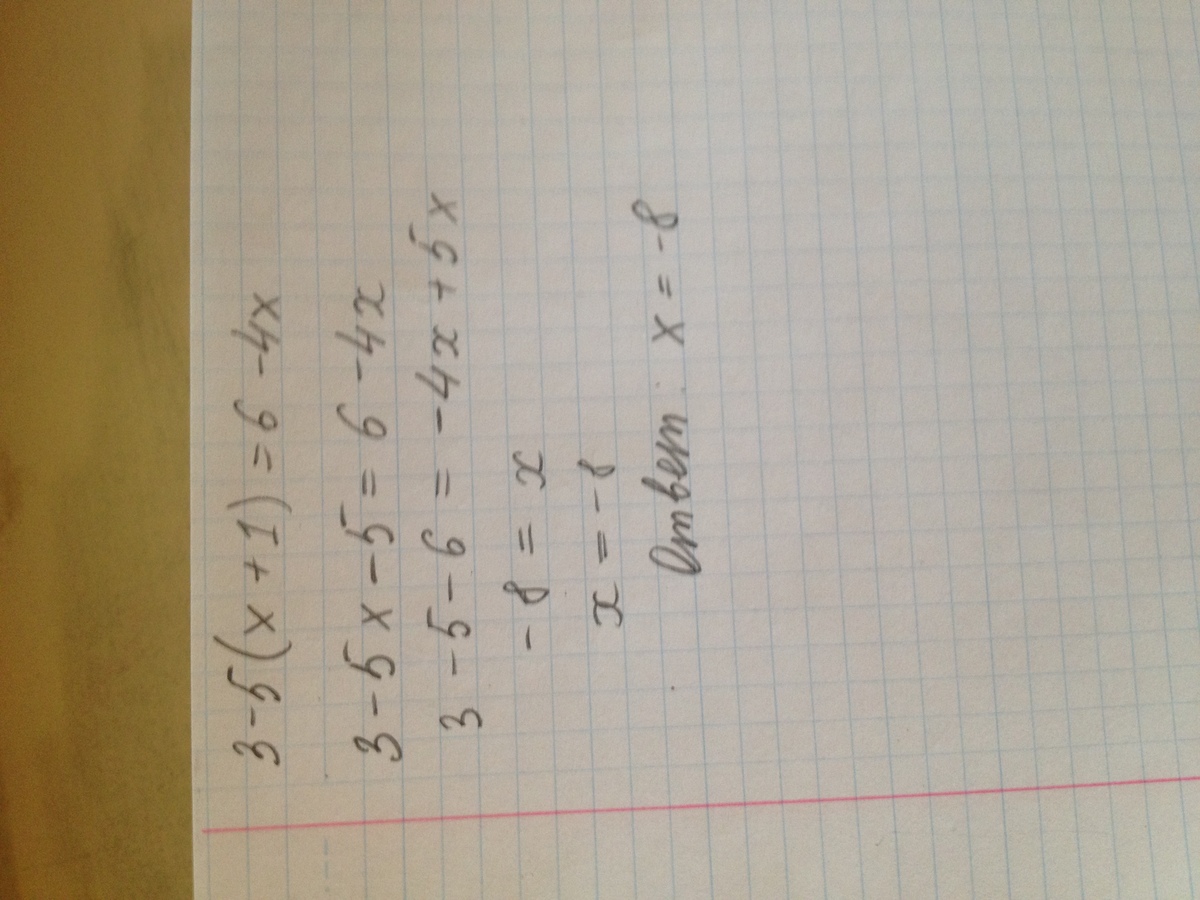 3-5(x+1)=6-4x
3-5x-5=6-4x
3-5-6=-4x+5x
-8=x
x=-8
Ответ: x=-8